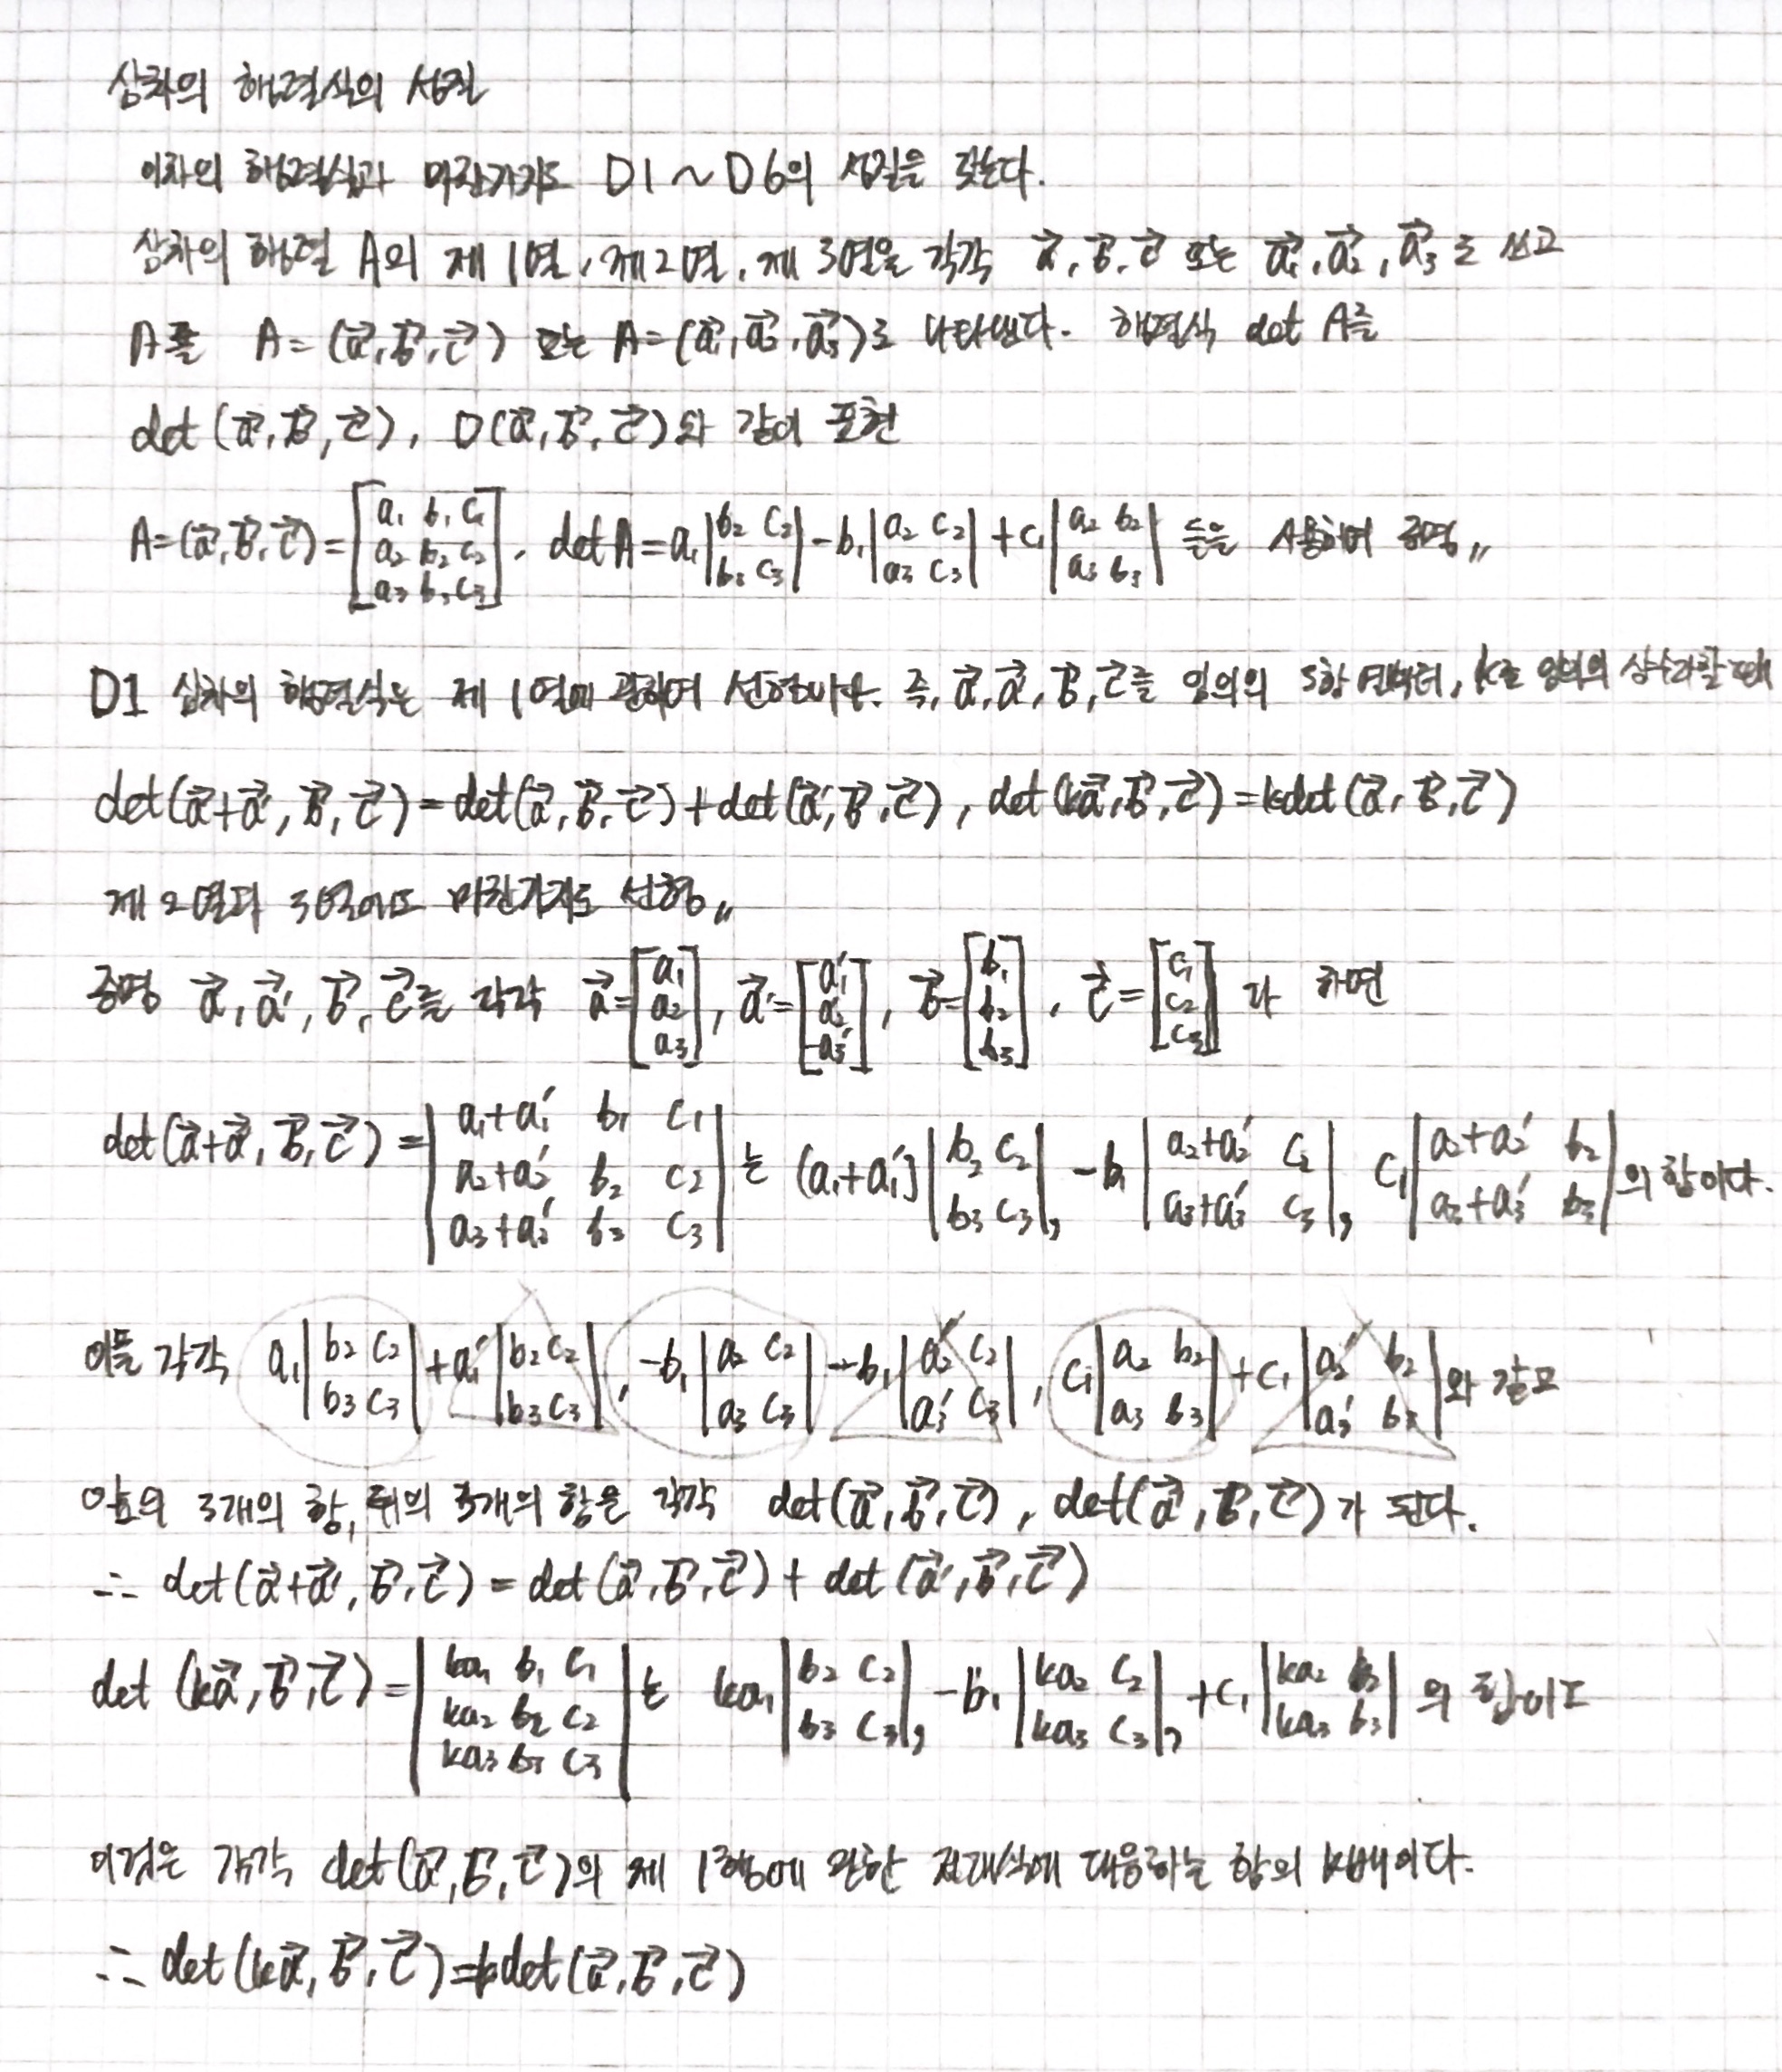 삼차의 행렬식의 성질
이차의 행렬식과 마찬가지로 D1 ~ D6의 성질을 갖는다.
삼차의 행렬 A의 제 1열, 제2열, 제 3열을 각각 a⃗, b⃗, c⃗ 또는 a⃗₁, a⃗₂, a⃗₃로 쓰고
A를 A = (a⃗, b⃗, c⃗) 또는 A = (a⃗₁, a⃗₂, a⃗₃)로 나타낸다. 행렬식 det A를
det (a⃗, b⃗, c⃗), D(a⃗, b⃗, c⃗)와 같이 표현
A = (a⃗, b⃗, c⃗) = [a₁ b₁ c₁; a₂ b₂ c₂; a₃ b₃ c₃], det A = a₁|b₂ c₂; b₃ c₃| - b₁|a₂ c₂; a₃ c₃| + c₁|a₂ b₂; a₃ b₃| 등을 사용하여 증명〃
D1 삼차의 행렬식은 제 1열에 관하여 선형이다. 즉, a⃗, a⃗', b⃗, c⃗를 임의의 3항 열벡터, k를 임의의 상수라할 때
det(a⃗+a⃗', b⃗, c⃗) = det(a⃗, b⃗, c⃗) + det(a⃗', b⃗, c⃗), det(ka⃗, b⃗, c⃗) = kdet(a⃗, b⃗, c⃗)
제 2열과 3열에도 마찬가지로 선형〃
증명 a⃗, a⃗', b⃗, c⃗를 각각 a⃗ = [a₁; a₂; a₃], a⃗' = [a₁'; a₂'; a₃'], b⃗ = [b₁; b₂; b₃], c⃗ = [c₁; c₂; c₃] 라 하면
det(a⃗+a⃗', b⃗, c⃗) = |a₁+a₁' b₁ c₁; a₂+a₂' b₂ c₂; a₃+a₃' b₃ c₃| 는 (a₁+a₁')|b₂ c₂; b₃ c₃|, -b₁|a₂+a₂' c₂; a₃+a₃' c₃|, c₁|a₂+a₂' b₂; a₃+a₃' b₃|의 합이다.
이들 각각 a₁|b₂ c₂; b₃ c₃| + a₁'|b₂ c₂; b₃ c₃|, -b₁|a₂ c₂; a₃ c₃| - b₁|a₂' c₂; a₃' c₃|, c₁|a₂ b₂; a₃ b₃| + c₁|a₂' b₂; a₃' b₃|와 같고
앞의 3개의 항, 뒤의 3개의 항은 각각 det(a⃗, b⃗, c⃗), det(a⃗', b⃗, c⃗)가 된다.
∴ det(a⃗+a⃗', b⃗, c⃗) = det(a⃗, b⃗, c⃗) + det(a⃗', b⃗, c⃗)
det (ka⃗, b⃗, c⃗) = |ka₁ b₁ c₁; ka₂ b₂ c₂; ka₃ b₃ c₃| 는 ka₁|b₂ c₂; b₃ c₃|, -b₁|ka₂ c₂; ka₃ c₃|, +c₁|ka₂ b₂; ka₃ b₃| 의 합이고
이것은 각각 det(a⃗, b⃗, c⃗)의 제 1행에 관한 전개식에 대응하는 항의 k배이다.
∴ det(ka⃗, b⃗, c⃗) = kdet(a⃗, b⃗, c⃗)